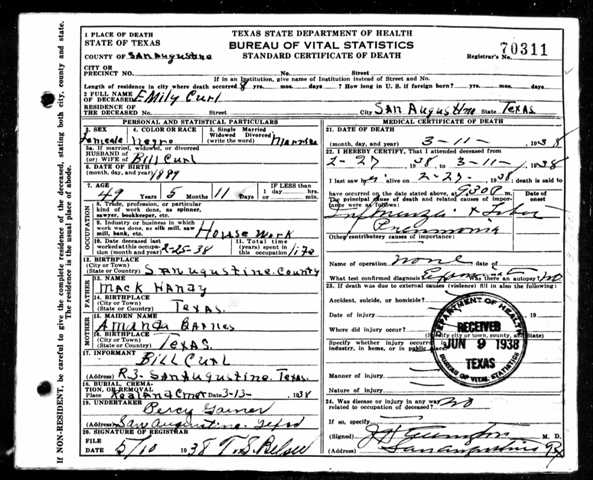 TEXAS STATE DEPARTMENT OF HEALTH
BUREAU OF VITAL STATISTICS
STANDARD CERTIFICATE OF DEATH
70311
Registrar's No.
1 PLACE OF DEATH
STATE OF TEXAS
COUNTY OF San Augustine
CITY OR
PRECINCT NO. Street
If in an Institution, give name of Institution instead of Street and No.
Length of residence in city where death occurred 8 yrs. mos. days ? How long in U. S. if foreign born? yrs. mos. days
2 FULL NAME
OF DECEASED Emily Curl
RESIDENCE OF
THE DECEASED No. Street City San Augustine State Texas
PERSONAL AND STATISTICAL PARTICULARS
3. SEX 4. COLOR OR RACE 5. Single Married
Widowed Divorced
(write the word)
Female Negro Married
5a. If married, widowed, or divorced
HUSBAND of
(or) WIFE of Bill Curl
6. DATE OF BIRTH
(month, day, and year) 1889
7. AGE IF LESS than
49 Years 5 Months 11 Days 1 day hrs.
or min.
OCCUPATION
8. Trade, profession, or particular
kind of work done, as spinner,
sawyer, bookkeeper, etc.
9. Industry or business in which
work was done, as silk mill, saw
mill, bank, etc. House Work
10. Date deceased last
worked at this occupation
(month and year) 2-25-38
11. Total time
(years) spent in
this occupation life
12. BIRTHPLACE
(City or Town)
(State or Country) San Augustine County
FATHER
13. NAME
Mack Handy
14. BIRTHPLACE
(City or Town)
(State or Country) Texas
MOTHER
15. MAIDEN NAME
Amanda Barnes
16. BIRTHPLACE
(City or Town)
(State or Country) Texas
17. INFORMANT
Bill Curl
(Address) R3- San Augustine Texas
18. BURIAL, CREMATION, OR REMOVAL
Place Date 3-13- 1938
19. UNDERTAKER
Percy Garner
(Address) San Augustine
20. SIGNATURE OF REGISTRAR
FILE
DATE 5/10 1938 T. S.
MEDICAL CERTIFICATION
21. DATE OF DEATH
(month, day, and year) 3- 1938
22. I HEREBY CERTIFY, That I attended deceased from
2-27 1938, to 3-11- 1938
I last saw alive on 2-27- 1938, death is said to
have occurred on the date stated above, at m.
The principal cause of death and related causes of importance were as follows: Date of onset
Influenza + Lobar
Pneumonia
Other contributory causes of importance:
Name of operation none Date of
What test confirmed diagnosis Was there an autopsy? no
23. If death was due to external causes (violence) fill in also the following:
Accident, suicide, or homicide?
Date of injury 19
Where did injury occur?
Specify whether injury occurred in industry, in home, or in public place
Manner of injury
Nature of injury
24. Was disease or injury in any way
related to occupation of deceased? no
If so, specify
(Signed) M. D.
(Address) San Augustine Tx
DEPARTMENT OF HEALTH
RECEIVED
JUN 9 1938
TEXAS
BUREAU OF VITAL STATISTICS
IF NON-RESIDENT be careful to give the complete residence of the deceased, stating both city, county and state.
The residence is the usual place of abode.